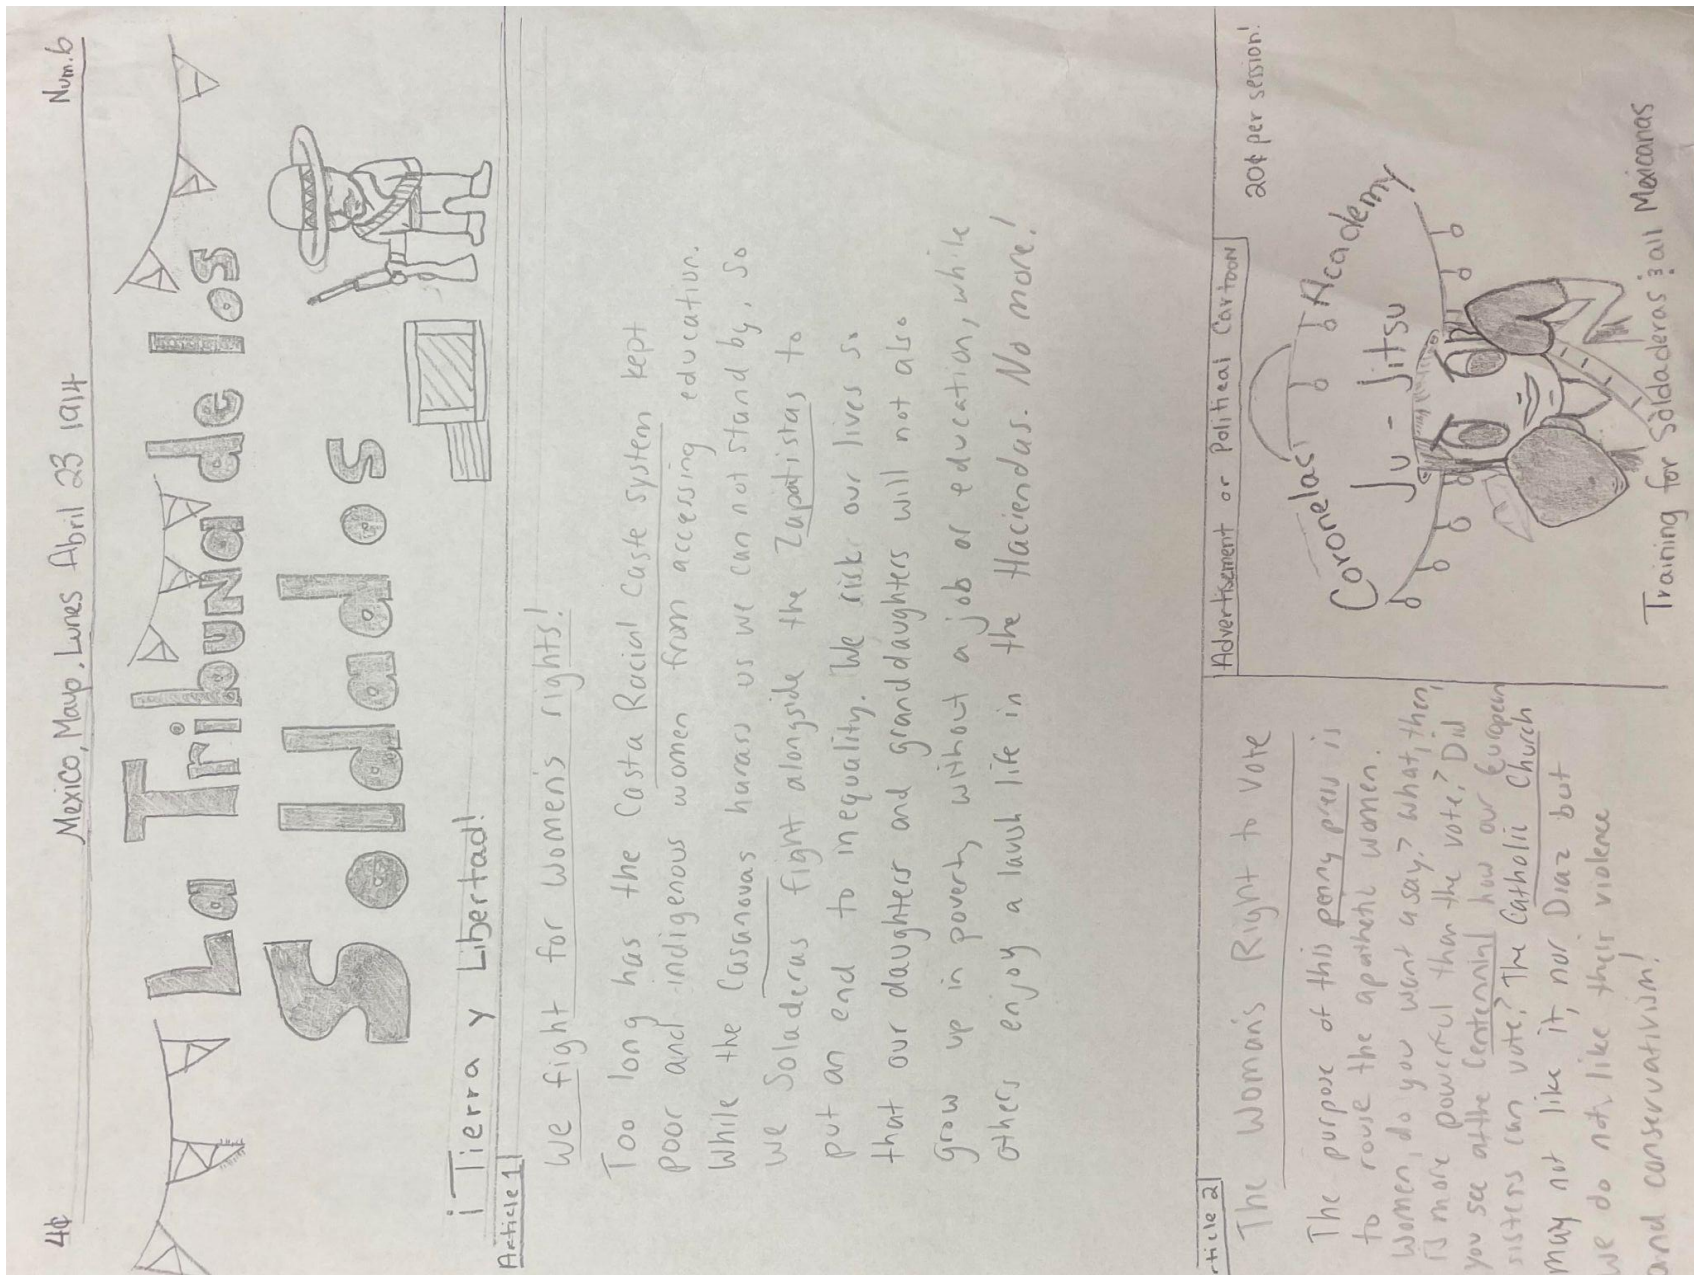 4¢ Mexico, Mayo, Lunes Abril 23 1914 Num. 6
La Tribuna de los
Soldados
¡Tierra y Libertad!
Article 1
We fight for women's rights!
Too long has the Casta Racial Caste system kept
poor and indigenous women from accessing education.
While the Casanovas harass us we can not stand by, so
we Soladeras fight alongside the Zapatistas to
put an end to inequality. We risk our lives so
that our daughters and granddaughters will not also
grow up in poverty without a job or education, while
others enjoy a lavish life in the Haciendas. No more!
rticle 2
The Woman's Right to Vote
The purpose of this penny press is
to rouse the apathetic women.
Women, do you want a say? What, then,
is more powerful than the vote? Did
you see at the Centennial how our European
sisters can vote? The Catholic Church
may not like it, nor Diaz but
we do not like their violence
and conservativism!
Advertisement or Political Cartoon
20¢ per session!
Coronelas' Academy
Ju-Jitsu
Training for Soldaderas & all Mexicanas